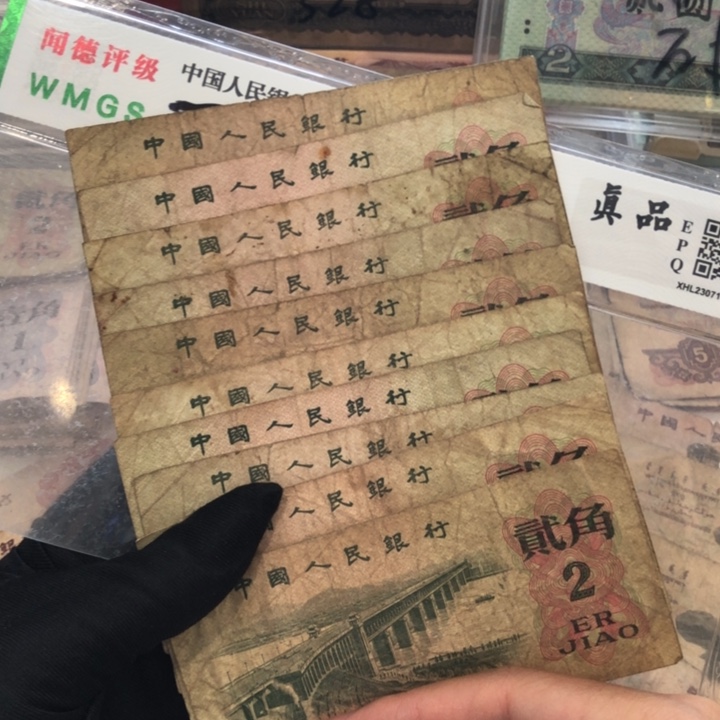 闻德评级
WMGS
中国人民銀
貳圆
2
真品
E
P
Q
XHL23071
中國人民銀行
中國人民銀行
中國人民銀行
中國人民銀行
中國人民銀行
中國人民銀行
中國人民銀行
中國人民銀行
國人民銀行
中國人民銀行
貳角
2
ER
JIAO
2
ER
JIAO
角
1
5